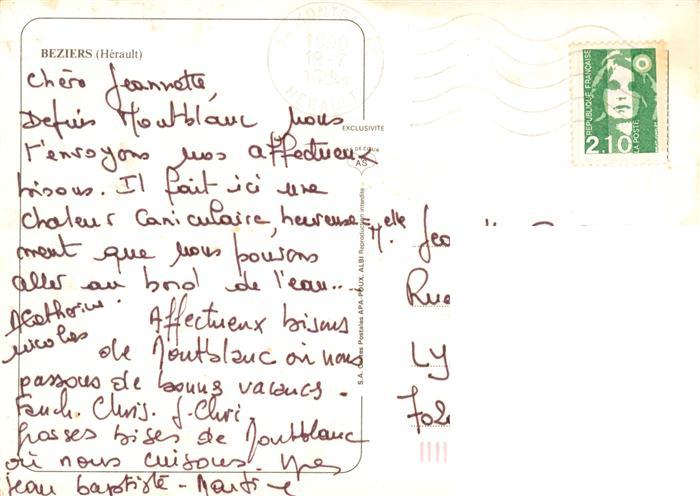 BEZIERS (Hérault)
Chère Jeannette,
Depuis Montblanc nous
t'envoyons nos affectueux
bisous. Il fait ici une
chaleur caniculaire, heureuse=
ment que nous pouvons
aller au bord de l'eau...
Catherine.
nicolas
Affectueux bisous
de Montblanc où nous
passons de bonnes vacances.
Chris. J. Chri.
Grosses bises de Montblanc
où nous cuisons. Yves
jean baptiste -
1990
19-7
HERAULT
EXCLUSIVITE
AS
S.A. Cartes Postales APA-POUX, ALBI Reproduction interdite
REPUBLIQUE FRANÇAISE
2,10
LA POSTE
Melle Jea
Rue
LY
702